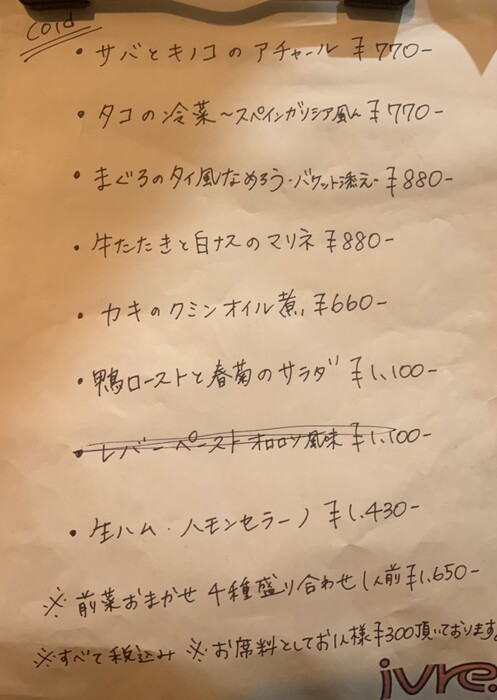 Cold
・サバとキノコのアチャール ¥770-
・タコの冷菜〜スペインガリシア風〜 ¥770-
・まぐろのタイ風なめろう・バケット添え- ¥880-
・牛たたきと白ナスのマリネ ¥880-
・カキのクミンオイル煮 ¥660-
・鴨ローストと春菊のサラダ ¥1,100-
・レバーペースト オロロソ風味 ¥1,100-
・生ハム・ハモンセラーノ ¥1,430-
※前菜おまかせ 4種盛り合わせ 1人前 ¥1,650-
※すべて税込み ※お席料としてお1人様¥300頂いております。
ivre